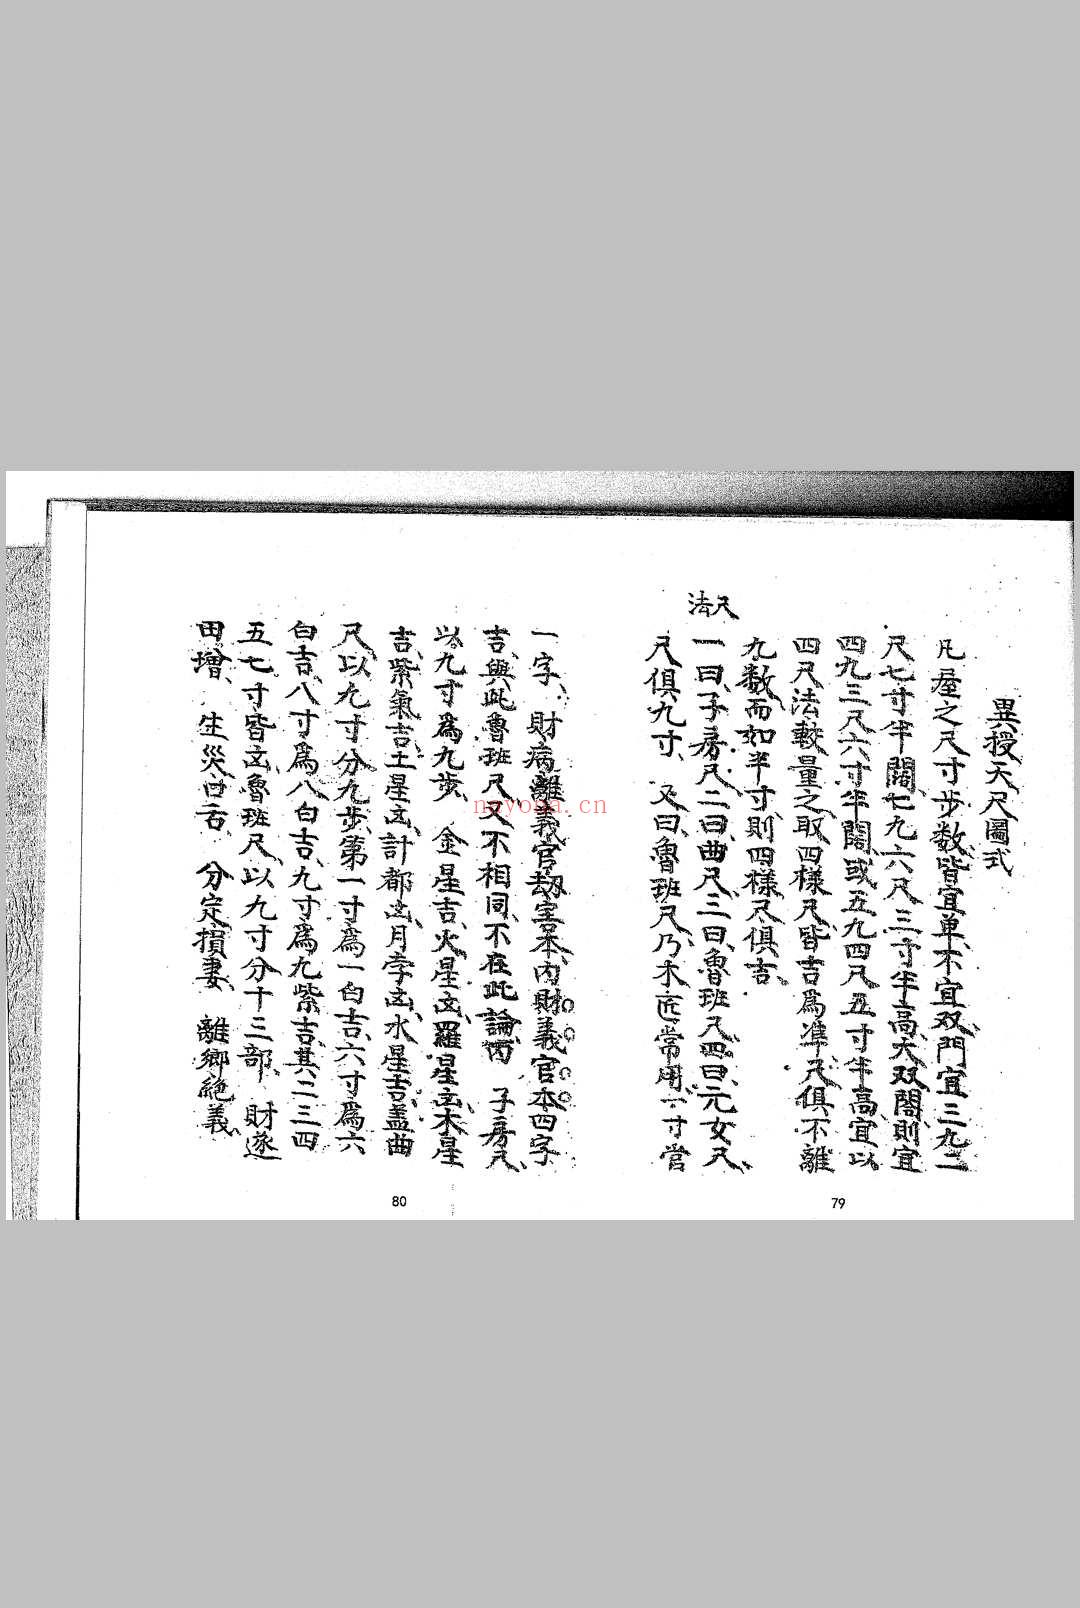 異授天尺圖式
凡屋之尺寸步数皆宜单不宜双門宜三九二
尺七寸半闊七九六尺三寸半高大双闊則宜
四九三尺六寸半闊或五九四尺五寸半高宜以
四尺法較量之取四樣尺皆吉爲準尺俱不離
九数而如半寸則四樣尺俱吉
尺法
一曰子房尺二曰曲尺三曰魯班尺四曰元女尺
尺俱九寸 又曰魯班尺乃木匠常用一寸當
79
一字 財病離義官劫害本内財義官本四字
吉與此魯班尺又不相同不在此論内 子房尺
以九寸爲九步 金星吉火星凶羅星凶木星
吉紫氣吉土星凶計都凶月孛凶水星吉盖曲
尺以九寸分九步第一寸爲一白吉六寸爲六
白吉八寸爲八白吉九寸爲九紫吉其二三四
五七寸皆凶魯班尺以九寸分十三部 財逐
田增 生災口舌 分定損妻 離鄉絶義
80
nayona.cn